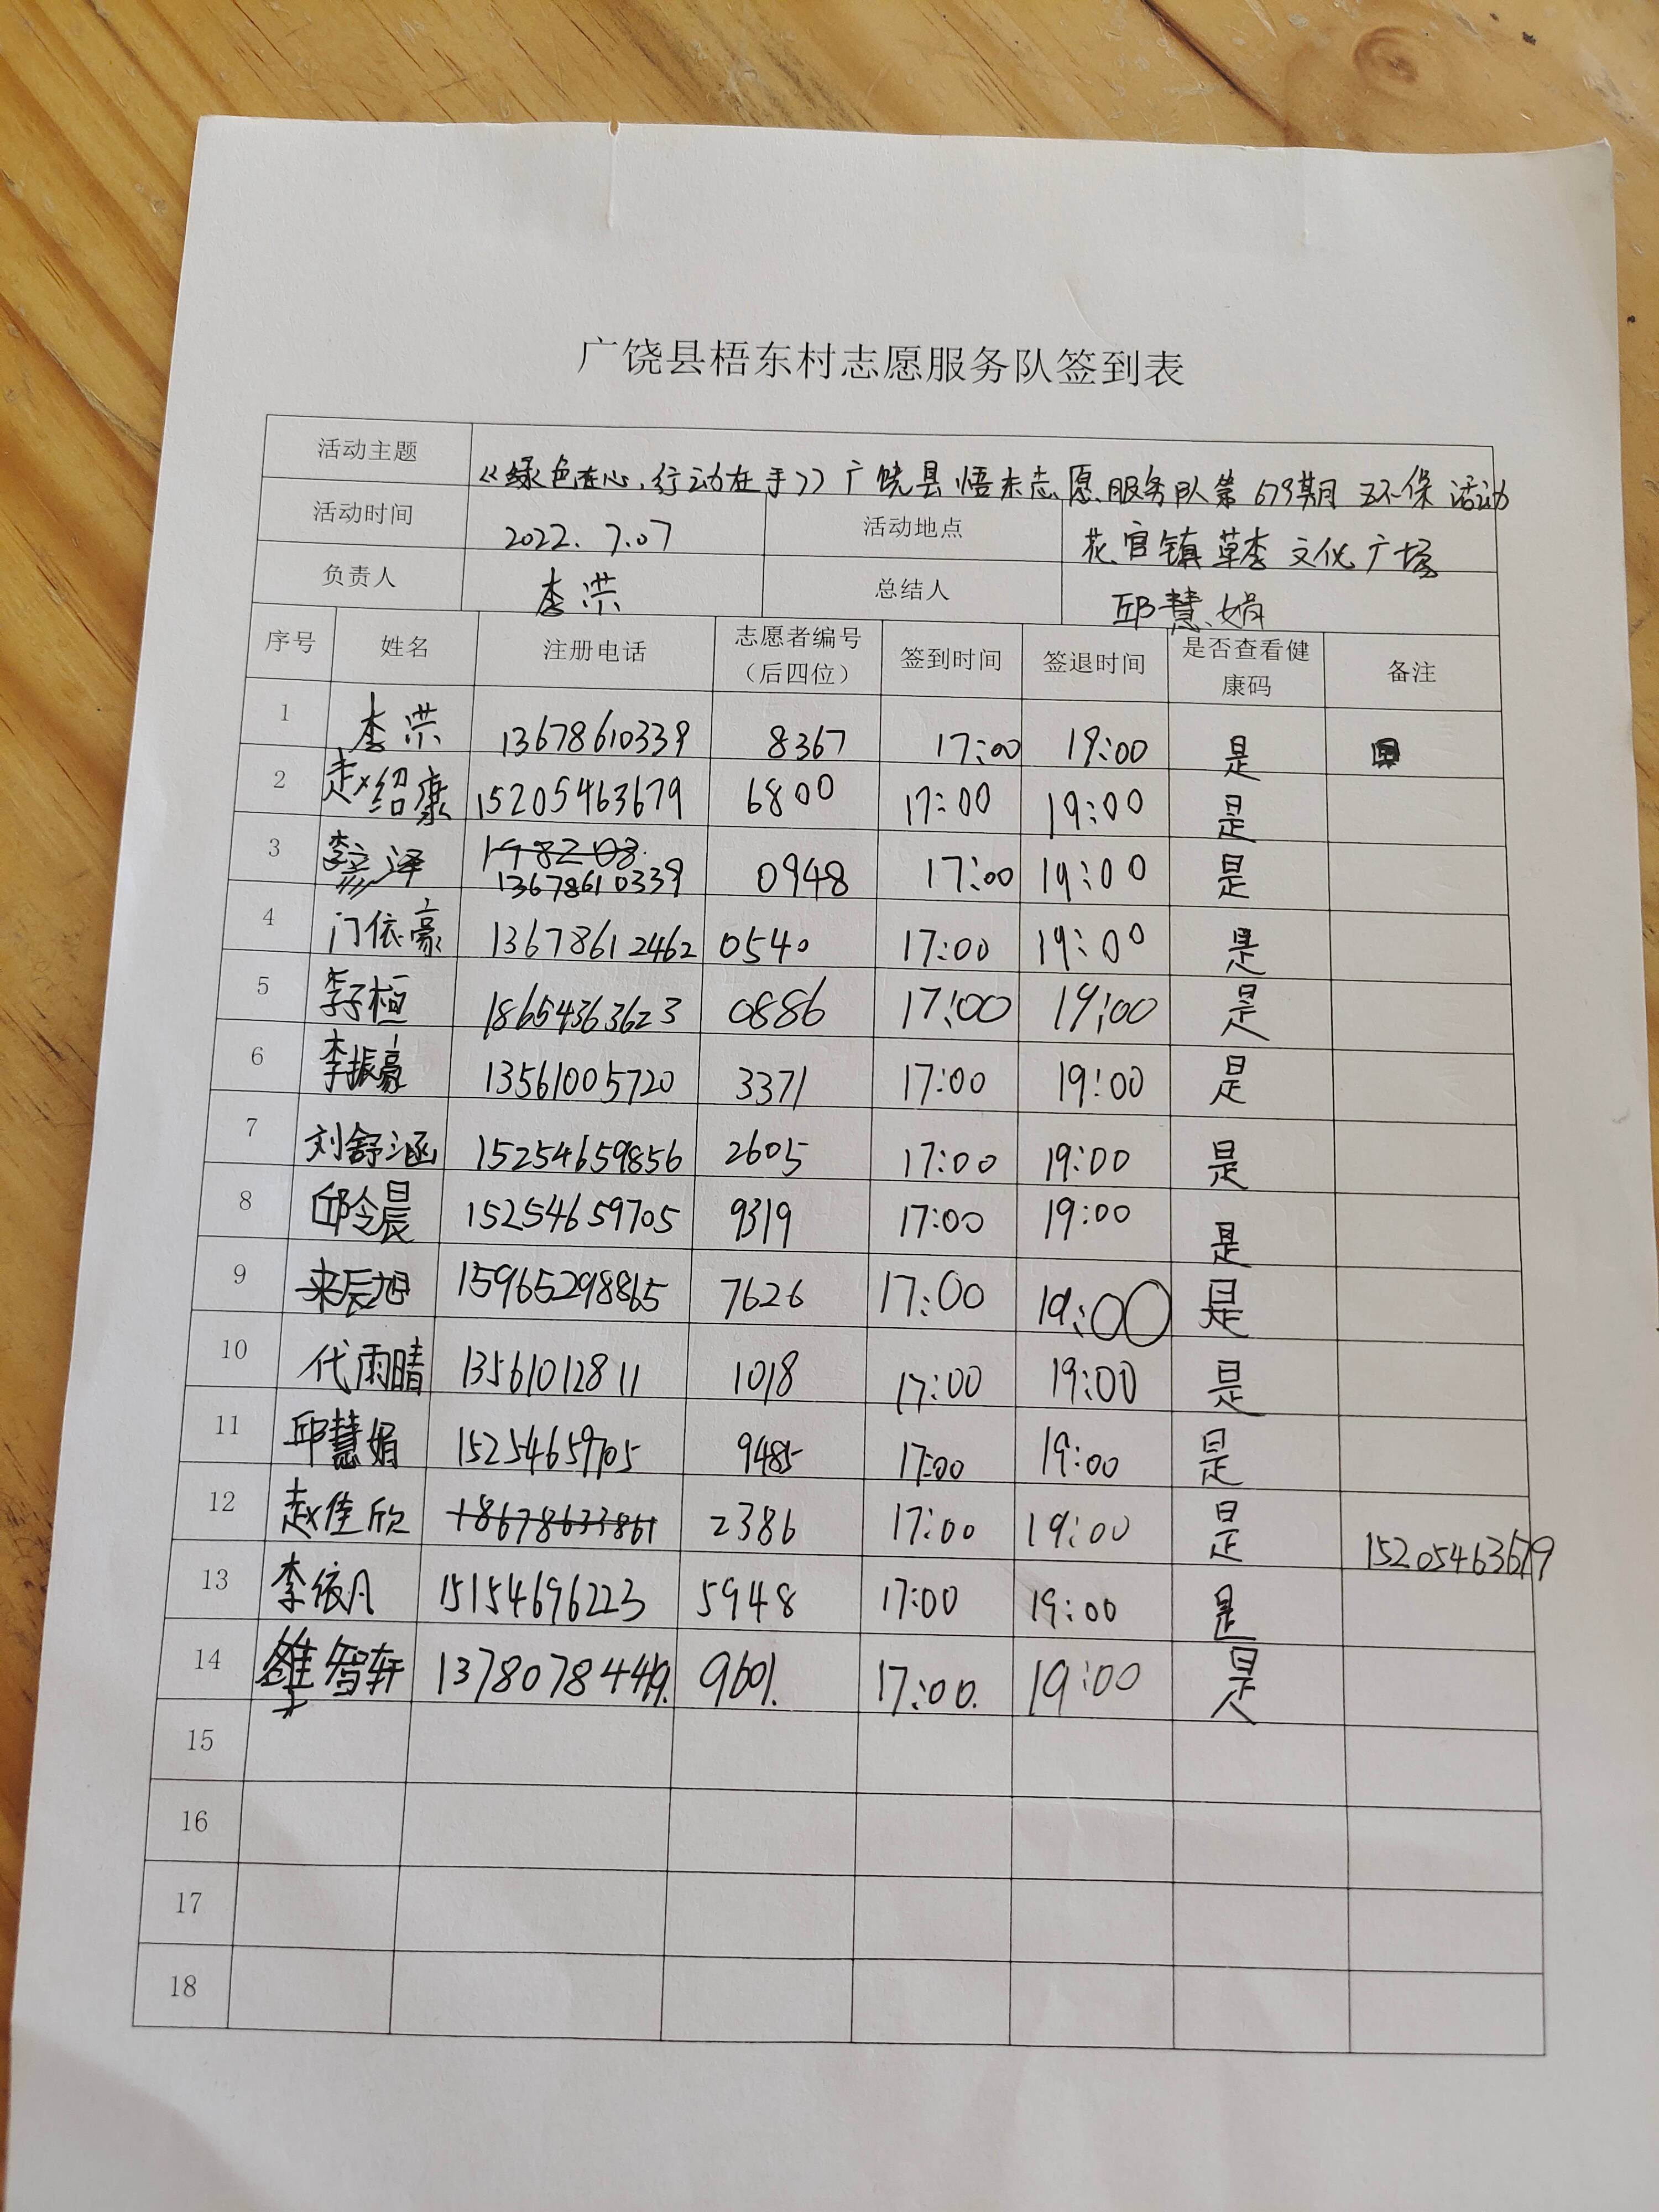 广饶县梧东村志愿服务队签到表
活动主题 《绿色在心，行动在手》广饶县悟东志愿服务队第679期环保活动
活动时间 2022.7.07 活动地点 花官镇草李文化广场
负责人 李洪 总结人 邱慧娟
序号 姓名 注册电话 志愿者编号（后四位） 签到时间 签退时间 是否查看健康码 备注
1 李洪 13678610339 8367 17:00 19:00 是
2 赵绍康 15205463679 6800 17:00 19:00 是
3 李彦泽 13678610339 0948 17:00 19:00 是
4 门依豪 13678612462 0540 17:00 19:00 是
5 李子桓 18654363623 0886 17:00 19:00 是
6 李振豪 13561005720 3371 17:00 19:00 是
7 刘舒涵 15254659856 2605 17:00 19:00 是
8 邱令晨 15254659705 9319 17:00 19:00 是
9 来辰旭 15965298865 7626 17:00 19:00 是
10 代雨晴 13561012811 1018 17:00 19:00 是
11 邱慧娟 15254659705 9485 17:00 19:00 是
12 赵佳欣 18678633861 2386 17:00 19:00 是 15205463679
13 李依凡 15154696223 5948 17:00 19:00 是
14 智轩 13780784449. 9601. 17:00. 19:00 是
15
16
17
18